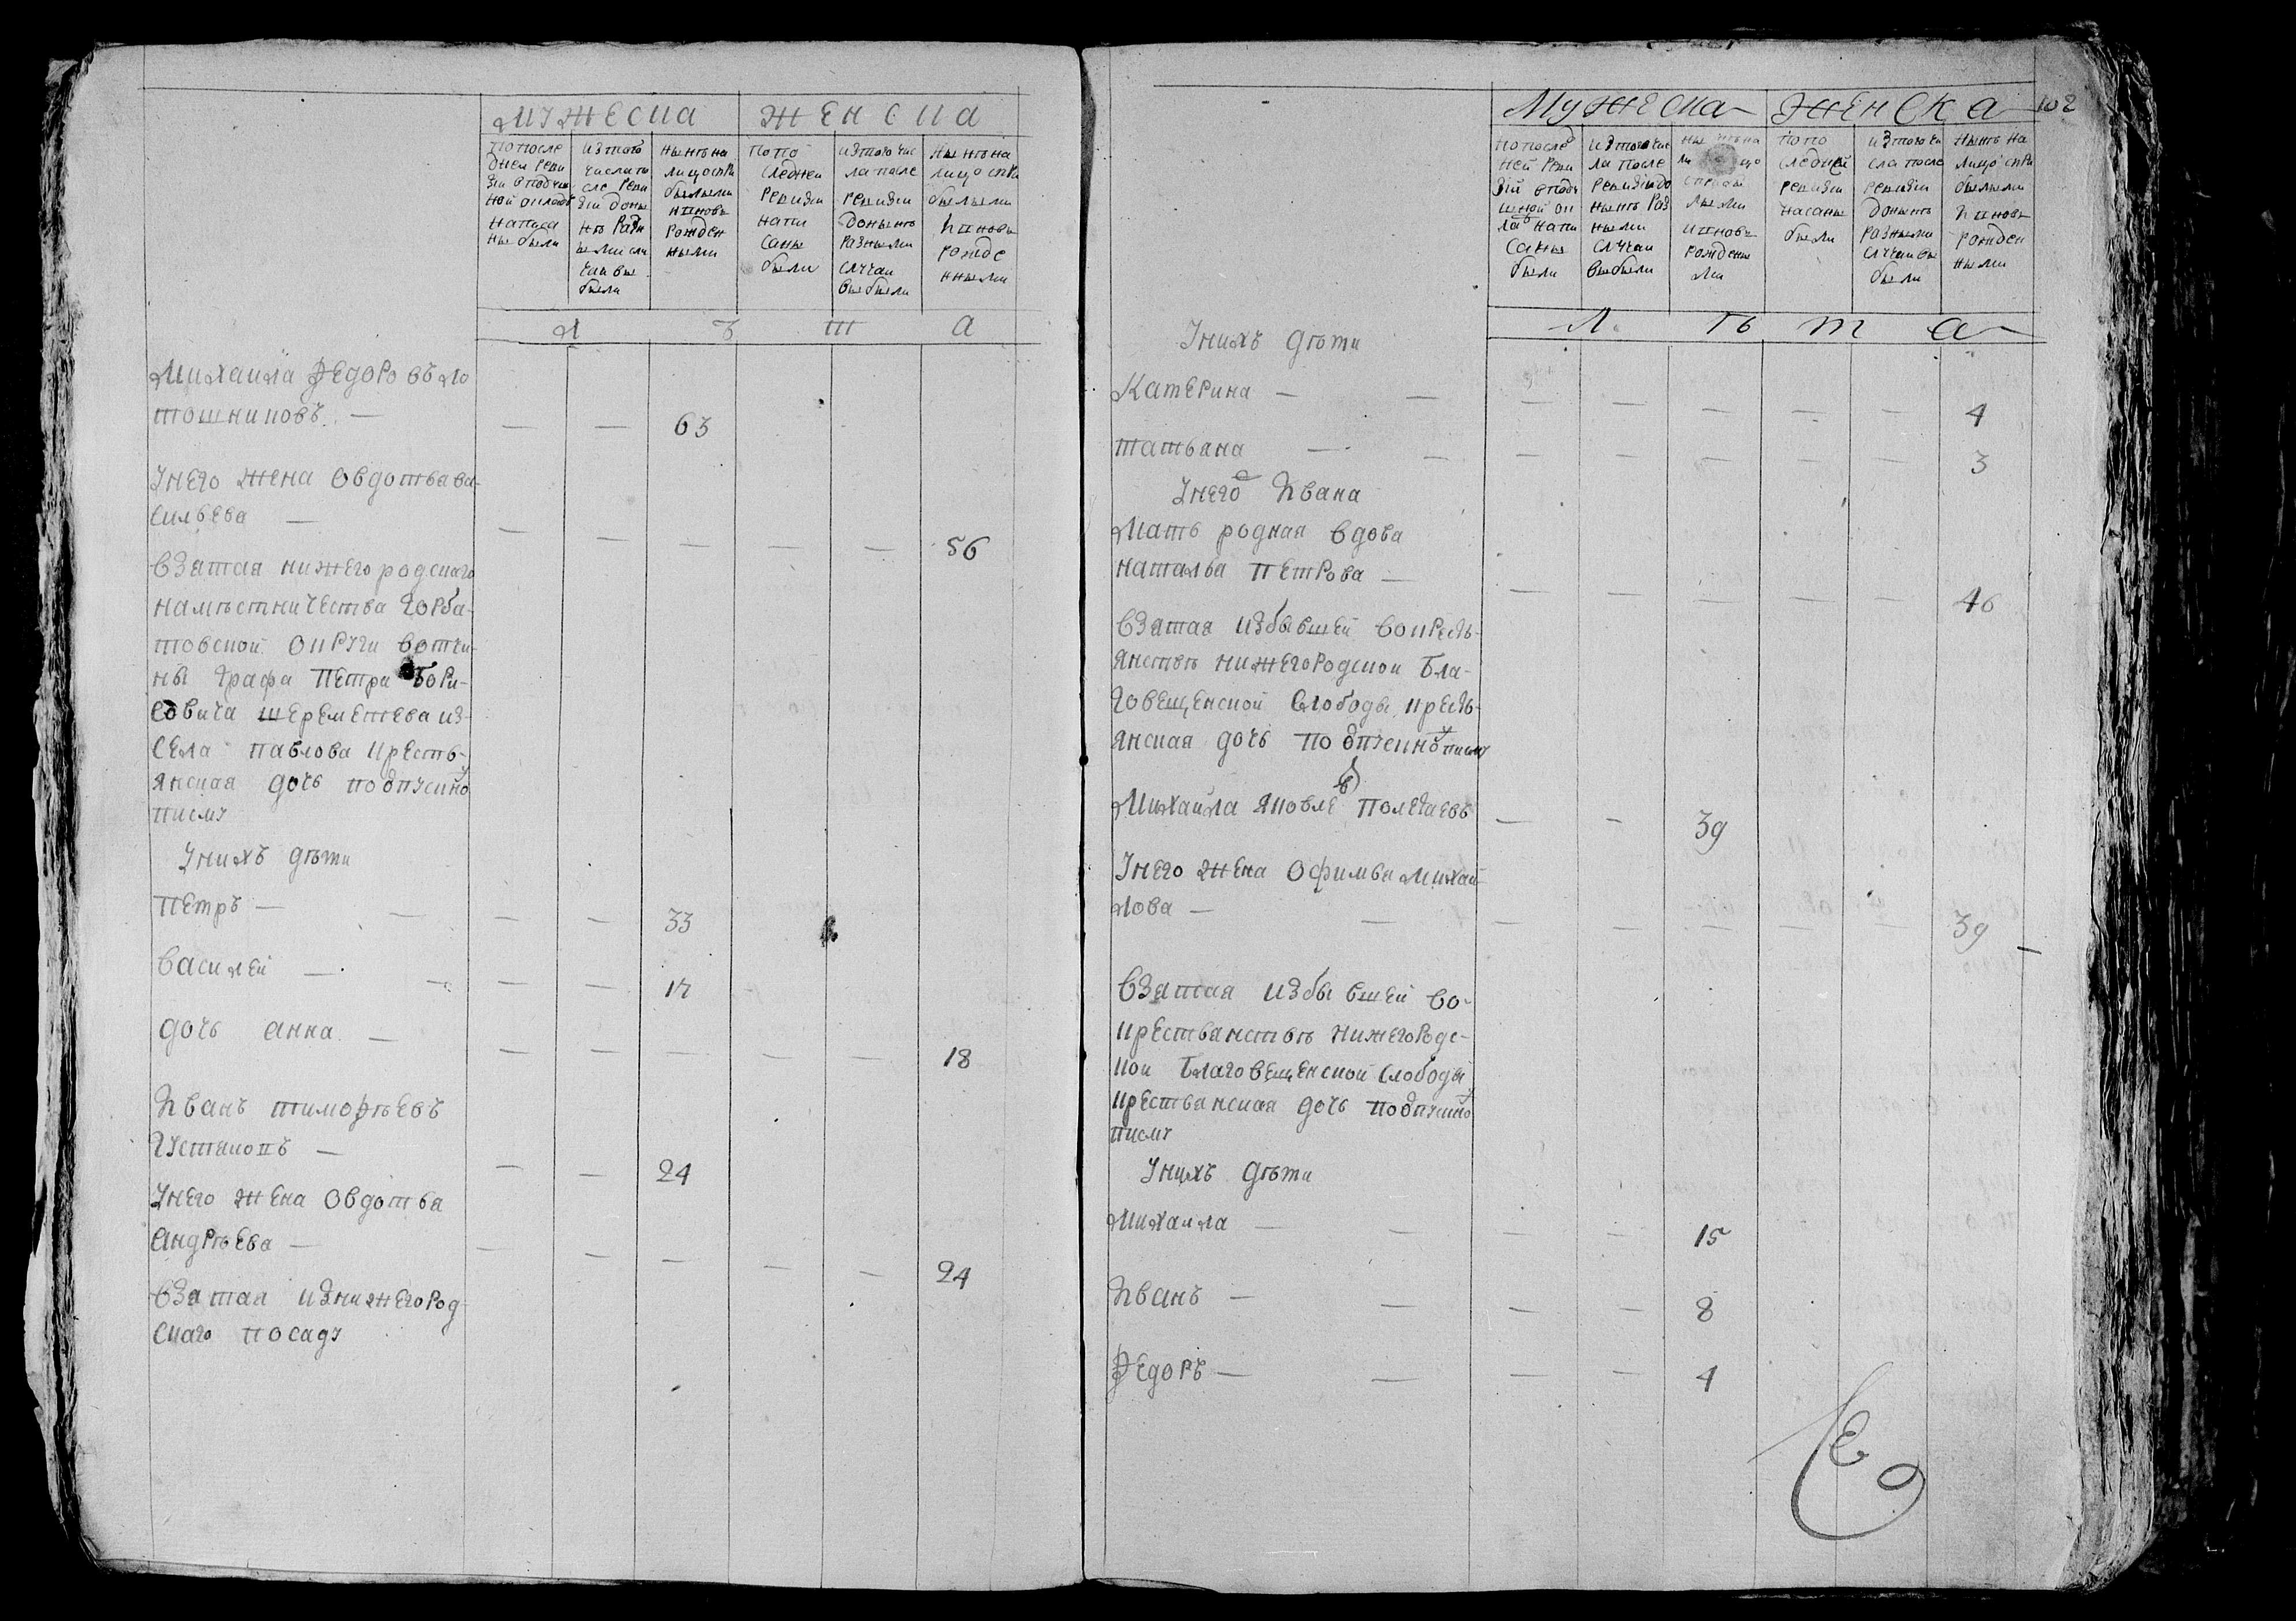 мужеска женска
по после
дней реви
зiи вподуш
ной окладъ
написа
ны были
изтого
числа по
сле реви
зiи доны
нѣ разн
ыми слу
чаи вы
были
нынѣ на
лицо спри
былыми
иновь
рожден
ными
по по
следней
ревизiи
напи
саны
были
изтого чис
ла после
ревизiи
до нынѣ
разными
случаи
выбыли
нынѣ на
лицо спри
былыми
иновь
рожде
нными
л ѣ т а
михаила федоровъ ло
тошниковъ — — — 63
у него жена овдотья ва-
сильева — — — — — — 56
взятая нижегородскаго
наместничества горба-
товской округи вотчи-
ны графа петра бори-
совича шереметева из-
села павлова кресть-
янская дочь поотпускно
писму
у нихъ дѣти
петръ — — — — 33
василей — — — — 17
дочь анна — — — — — — 18
иванъ тимофѣевъ
густякопъ — — — 24
у него жена овдотья
андрѣева — — — — — — 24
взятая изнижегород-
скаго посаду
мужеска женска 102
по послед
ней реви
зiи вподу
шной ок
ла напи
саны
были
изтого чис
ла после
ревизiидо
нынѣ раз
ными
случаи
выбыли
лицо
иновь
рождены
ми
по по
следней
ревизiи
насаны
были
изтого чи
сла после
ревизiи
донынѣ
разными
случаи вы
были
нынѣ на
лицо спри
былыми
иновь
рожден
ными
л ѣ т а
у нихъ дѣти
катерина — — — — — — — 4
татьяна — — — — — — — 3
у него ивана
мать родная вдова
наталья петрова — — — — — — 46
взятая избывшей вокресть-
янствѣ нижегородской бла-
говещенской слободы кресть-
янская дочь по отпускно писму
михаила яковлевъ полегаевъ — — 39
у него жена офимья михай-
лова — — — — — — — 39
взятая избывшей во-
крестьянствѣ нижегородс-
кои благовещенской слободы
крестьянская дочь поотпускно
писму
у нихъ дѣти
михаила — — — — 15
иванъ — — — — 8
федоръ — — — — 4